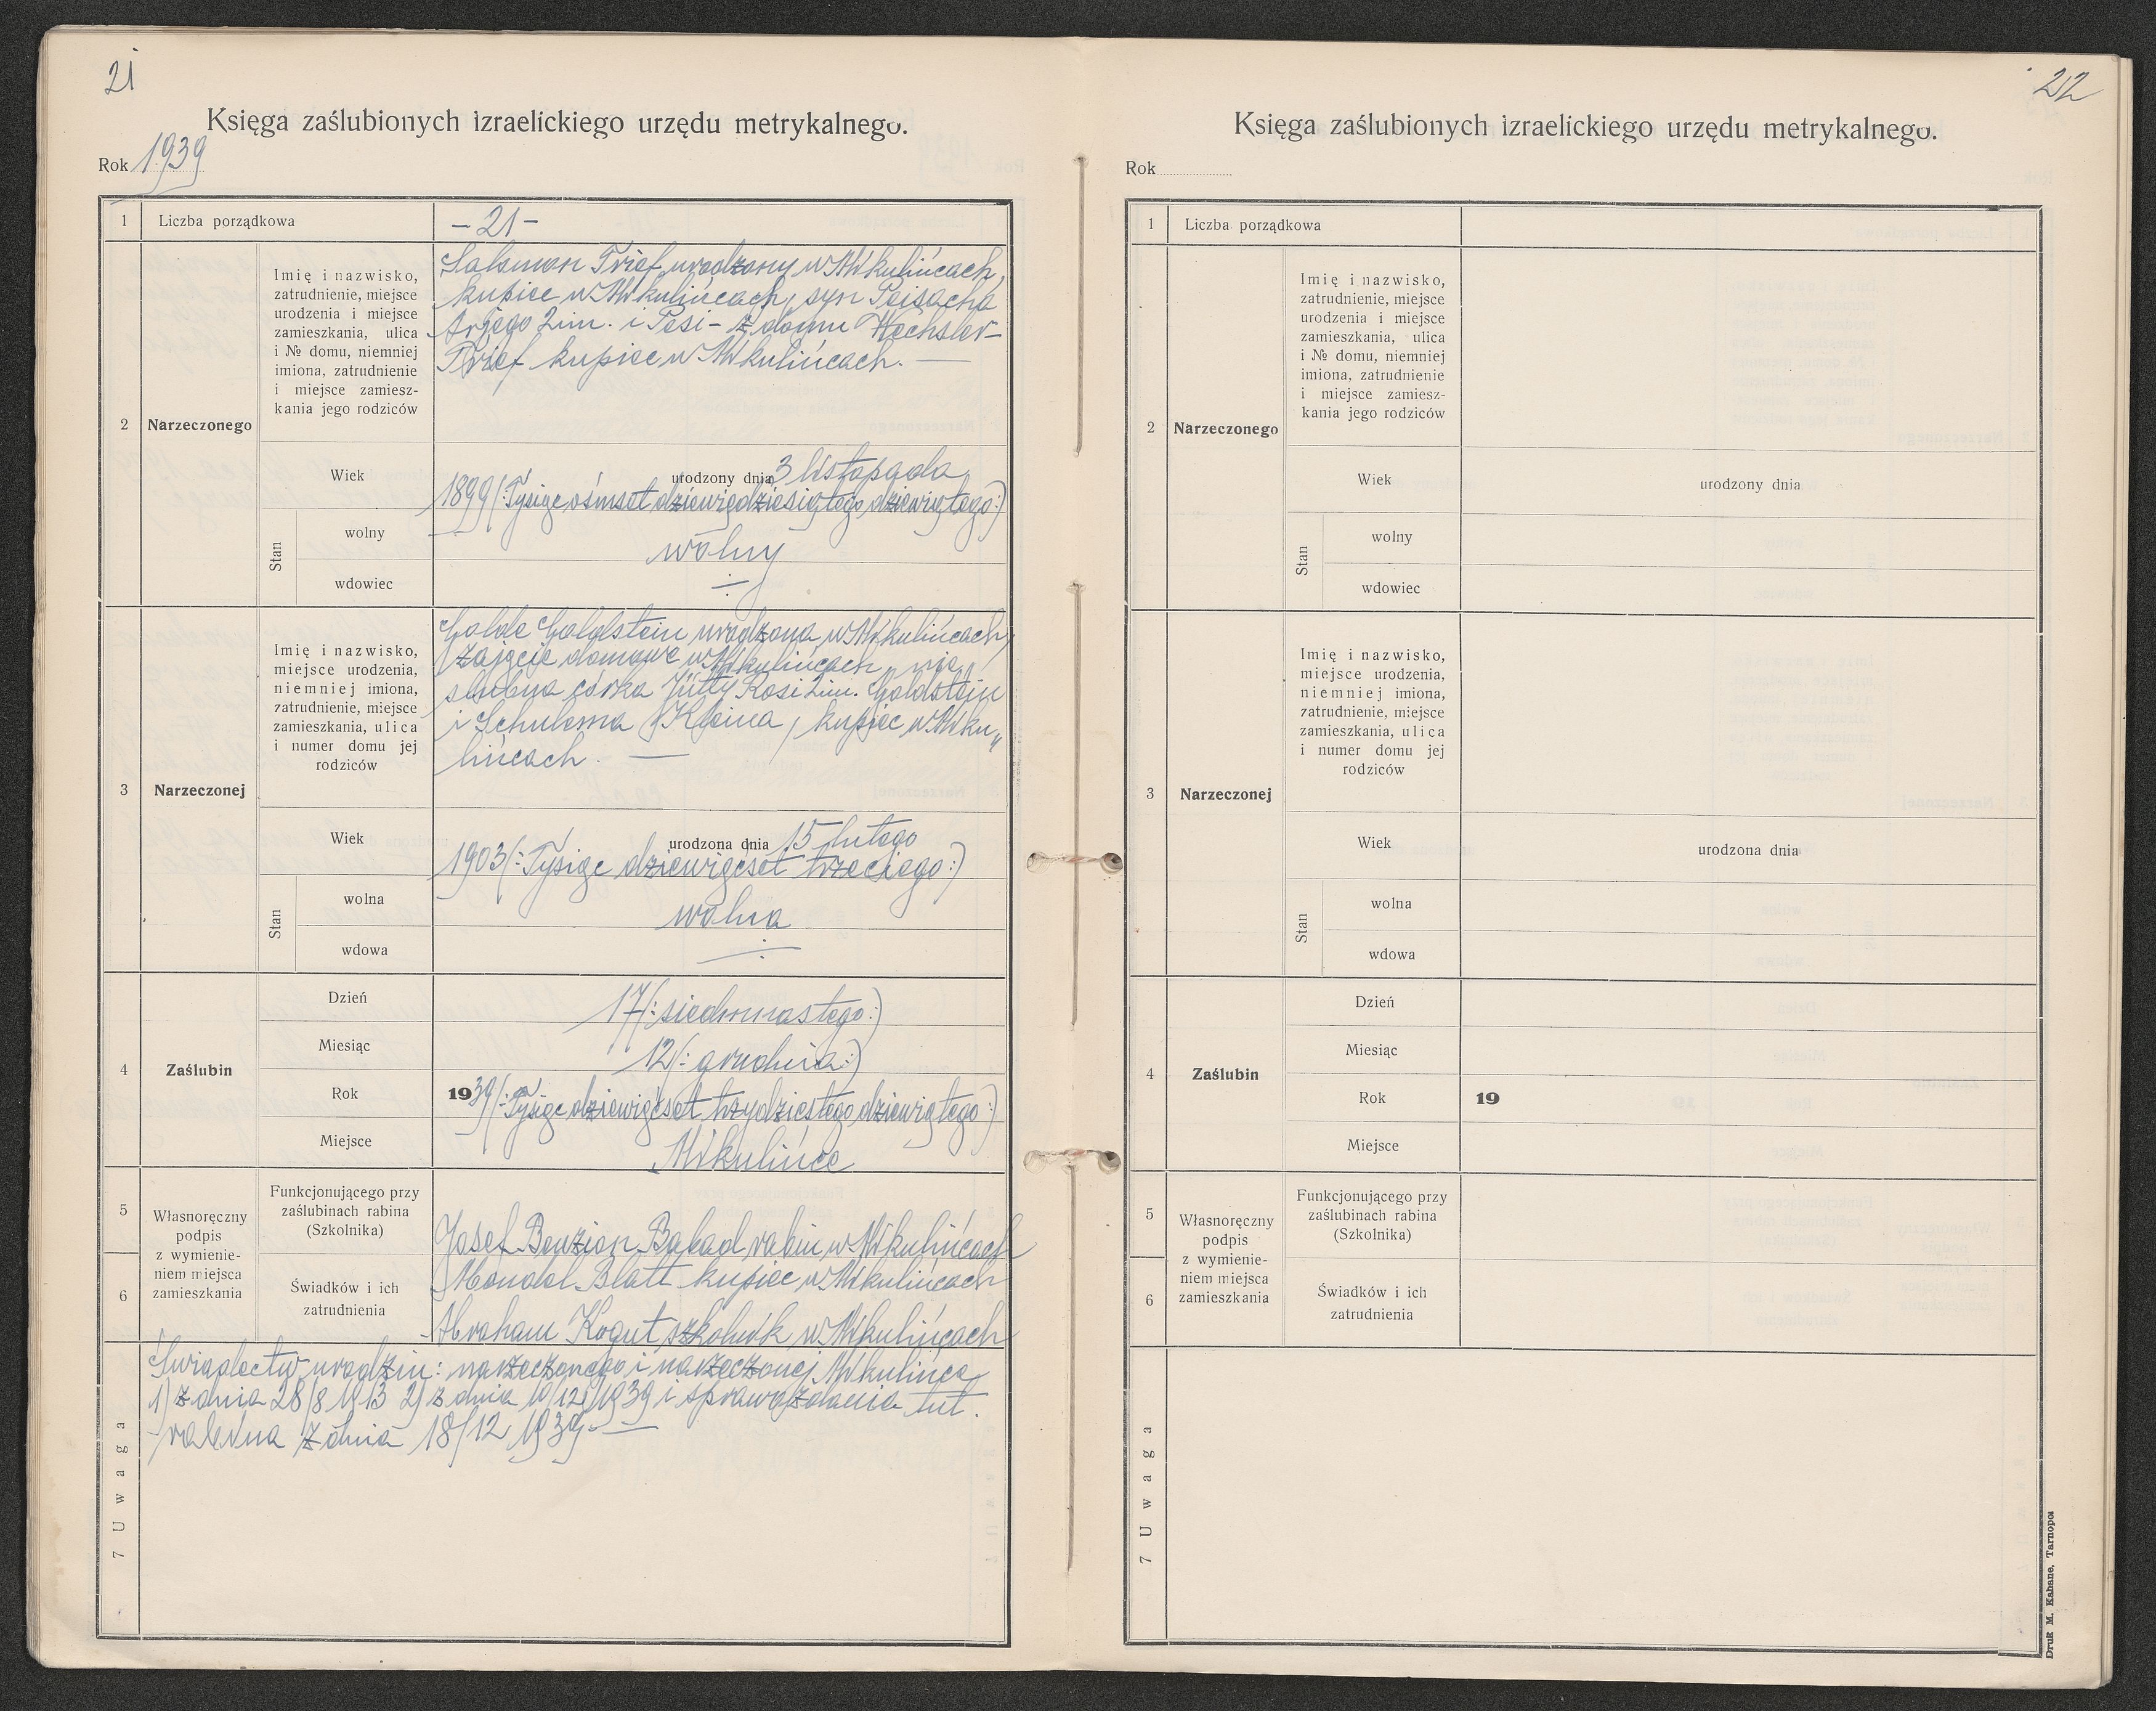 21
Księga zaślubionych izraelickiego urzędu metrykalnego.
Rok 1939
1 Liczba porządkowa
-21-
2 Narzeczonego
Imię i nazwisko,
zatrudnienie, miejsce
urodzenia i miejsce
zamieszkania, ulica
i № domu, niemniej
imiona, zatrudnienie
i miejsce zamiesz-
kania jego rodziców
Salomon Frief urodzony w Mikulińcach,
kupiec w Mikulińcach, syn Peisacha
2im. i Pesi - z domu Wechsler-
Frief kupiec w Mikulińcach. —
Wiek
urodzony dnia 3 listopada
1899 (: Tysiąc ośmset dziewiędziesiątego dziewiątego:)
Stan
wolny
wolny
wdowiec
3 Narzeczonej
Imię i nazwisko,
miejsce urodzenia,
niemniej imiona,
zatrudnienie, miejsce
zamieszkania, ulica
i numer domu jej
rodziców
Golde Goldstein urodzona w Mikulińcach,
zajęcie domowe w Mikulińcach, nie„
ślubna córka Jütty Rosi 2im. Goldstein
i Schulema Kleina, kupiec w Miku„
lińcach. —
Wiek
urodzona dnia 15 lutego
1903 (: Tysiąc dziewięćset trzeciego:)
Stan
wolna
wolna
wdowa
4 Zaślubin
Dzień
17 (: siedmnastego:)
Miesiąc
12 (: grudnia:)
Rok
1939 (: Tysiąc dziewięćset trzydziestego dziewiątego:)
Miejsce
Mikulińce
5
6
Własnoręczny
podpis
z wymienie-
niem miejsca
zamieszkania
Funkcjonującego przy
zaślubinach rabina
(Szkolnika)
Josef Benzion Babad rabin w Mikulińcach
Świadków i ich
zatrudnienia
Mendel Blatt kupiec w Mikulińcach
Abraham Kogut szkolnik w Mikulińcach
7 Uwaga
Świadectw urodzin: narzeczonego i narzeczonej Mikulińce
1) z dnia 28/8 1913 2) z dnia 10/12 1939 i sprawozdania tut.
rabina z dnia 18/12 1939. —
22
Księga zaślubionych izraelickiego urzędu metrykalnego.
Rok
1 Liczba porządkowa
2 Narzeczonego
Imię i nazwisko,
zatrudnienie, miejsce
urodzenia i miejsce
zamieszkania, ulica
i № domu, niemniej
imiona, zatrudnienie
i miejsce zamiesz-
kania jego rodziców
Wiek
urodzony dnia
Stan
wolny
wdowiec
3 Narzeczonej
Imię i nazwisko,
miejsce urodzenia,
niemniej imiona,
zatrudnienie, miejsce
zamieszkania, ulica
i numer domu jej
rodziców
Wiek
urodzona dnia
Stan
wolna
wdowa
4 Zaślubin
Dzień
Miesiąc
Rok
19
Miejsce
5
6
Własnoręczny
podpis
z wymienie-
niem miejsca
zamieszkania
Funkcjonującego przy
zaślubinach rabina
(Szkolnika)
Świadków i ich
zatrudnienia
7 Uwaga
Druk M. Kahane, Tarnopol